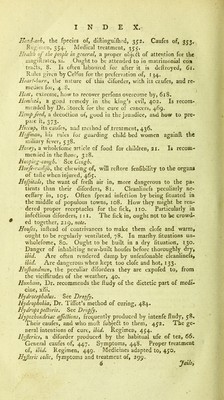 INDEX.
Head-ach, the species of, distinguished, 352. Causes of, 353.
Regimen, 354. Medical treatment, 355.
Health of the people in general, a proper object of attention for the
magistrates, xi. Ought to be attended to in matrimonial con
tracts, 8. Is often laboured for after it is destroyed, 61.
Rules given by Celsus for the preservation of, 134.
Heartburn, the nature of this disorder, with its causes, and re-
medies for, 4 8.
Heat, extreme, how to recover persons overcome by, 618.
Hemlock, a good remedy in the king's evil, 402. Is recom-
mended by Dr. Storck for the cure of cancers, 469.
Hemp-seed, a decoction of, good in the jaundice, and how to pre-
pare it, 373.
Hiccup, its causes, and method of treatment, 436.
Hoffman, his rules for guarding child-bed women against the
miliary fever, 538.
Honey, a wholesome article of food for children, 21. Is recom-
mended in the stone, 328.
Hooping-cough. See Cough.
Horseradish, the chewing of, will restore sensibility to the organs
of taste when injured, 465.
Hospitals, the want of fresh air in, more dangerous to the pa-
tients than their disorders, 81. Cleanliness peculiarly ne-
cessary in, 105. Often spread infection by being situated in
the middle of populous towns, 108. How they might be ren-
dered proper receptacles for the sick, 110. Particularly in
infectious disorders, 111. The sick in, ought not to be crowd-
ed together, 210, note.
Houses, instead of contrivances to make them close and warm,
ought to be regularly ventilated, 78. In marshy situations un-
wholesome, 80. Ought to be built in a dry situation, 130.
Danger of inhabiting new-built houses before thoroughly dry,
ibid. Are often rendered damp by unseasonable cleanliness,
ibid. Are dangerous when kept too close and hot, 133.
Husbandmen, the peculiar disorders they are exposed to, from
the vicissitudes of the weather, 40.
Huxham, Dr. recommends the study of the dietetic part of medi-
cine, xiii.
Hydrocephalus. See Dropsy.
Hydrophobia, Dr. Tissot's method of curing, 484.
Hydrops pectoris. See Dropsy.
Hypochondriac affections, frequently produced by intense study, 58.
Their causes, and who most subject to them, 451. The ge-
neral intentions of cure, ibid. Regimen, 454.
Hysterics, a disorder produced by the habitual use of tea, 66.
General causes of, 447. Symptoms, 448. Proper treatment
of, ibid. Regimen, 449. Medicines adapted to, 450.
Hysteric colic, symptoms and treatment of, 299.
6
Jails,